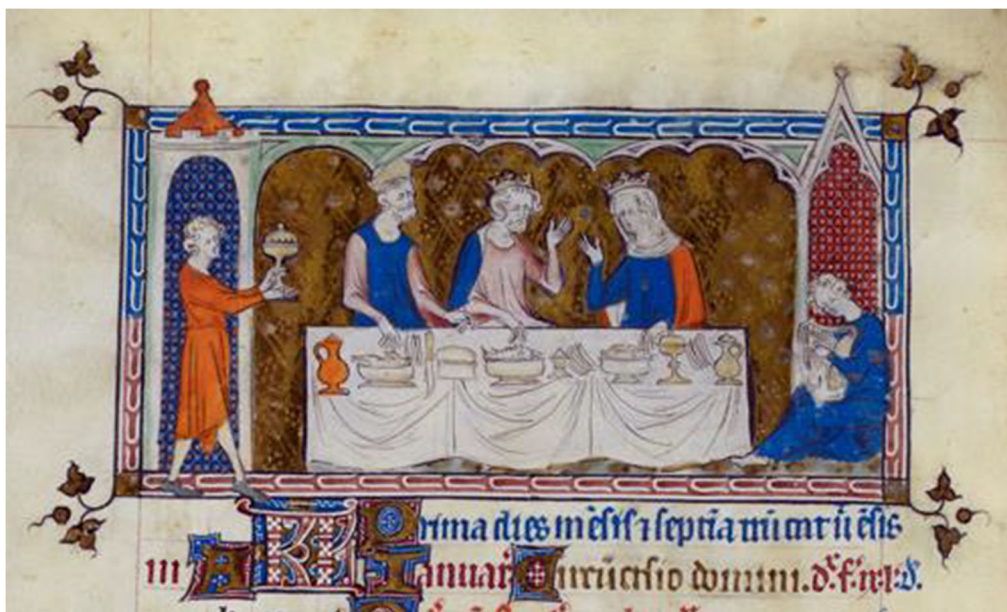 Prima dies mēsis ⁊ septīa trūcat ut ēsis
III A KL Ianuar' Circūcisio domini.